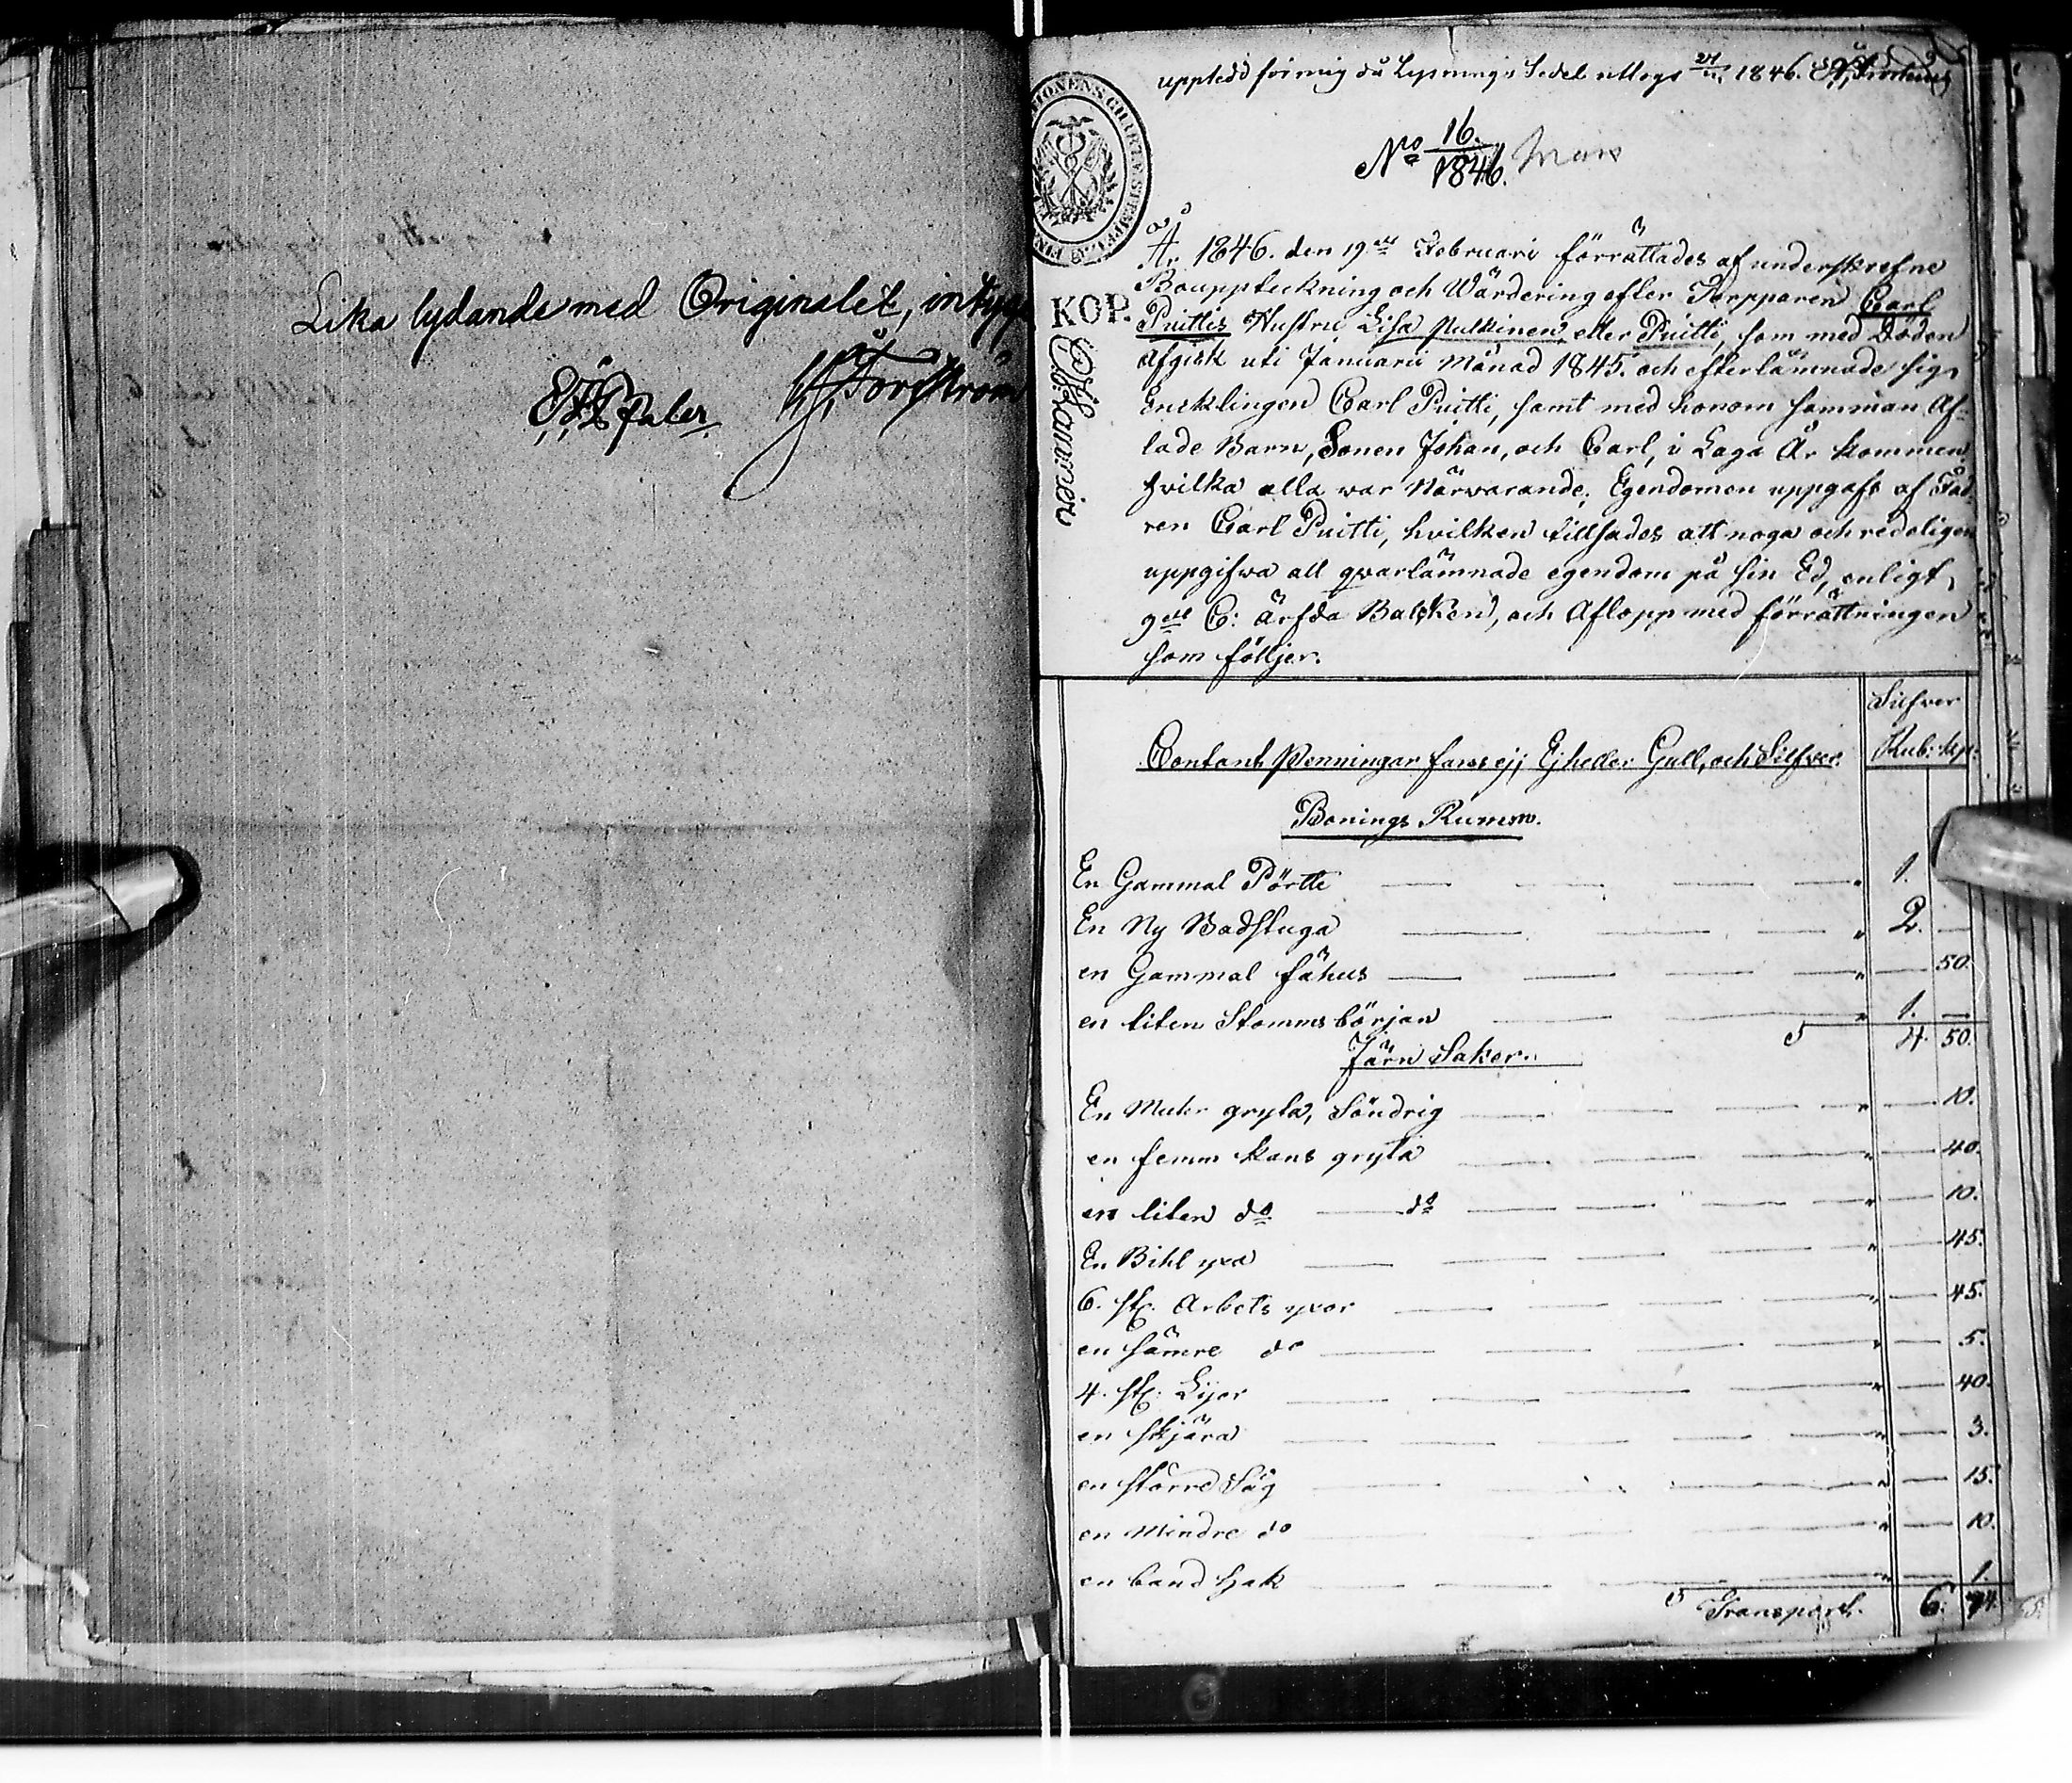 Lika lydande med Originalet, intyga
uppledd för mig då Lysnings Sedel uttogs 24/11 1846.
No 16./1846.
KOP.
År 1846. den 19de Februari förrättades af underskrefne
Bouppteckning och Wärdering efter Torpparen Carl
Puittis Hustru Lisa Pulkinen eller Puitti, som med Döden
afgick uti Januarii Månad 1845. och efterlämnade sig
Encklingen Carl Puitti, samt med honom samman Af-
lade Barn, Sonen Johan, och Carl, i Laga År kommen,
hvilka alla war Närwarande. Egendomen uppgafs af Fad
ren Carl Puitti, hvilken tillsades att noga och redeligen
uppgifwa all qvarlämnade egendom på sin Ed, enligt
9de C: ärfda Balcken, och Aflopp med förrättningen
som följer.
Silfver
Contant Penningar fans ej, Ej heller Gull, och Silfver. Rub: kp:
Bonings Rumm.
En Gammal Pörtte " 1.
En Ny Badstuga " 2. —
en Gammal fähus " — 50.
en liten Stomms början " 1. —
S 4. 50.
Järn Saker.
En Muter gryta, Söndrig " — 10.
en femm kans gryta " — 40.
en liten do do " — 10.
En Bihl yxa " — 45.
6. st: Arbets yxor " — 45.
en sämre do " — 5.
4. st: Lijor " — 40.
en skjära " — 3.
en större Såg " — 15.
en Mindre do " — 10.
en band hak " — 1.
S Transport. 6. 74.